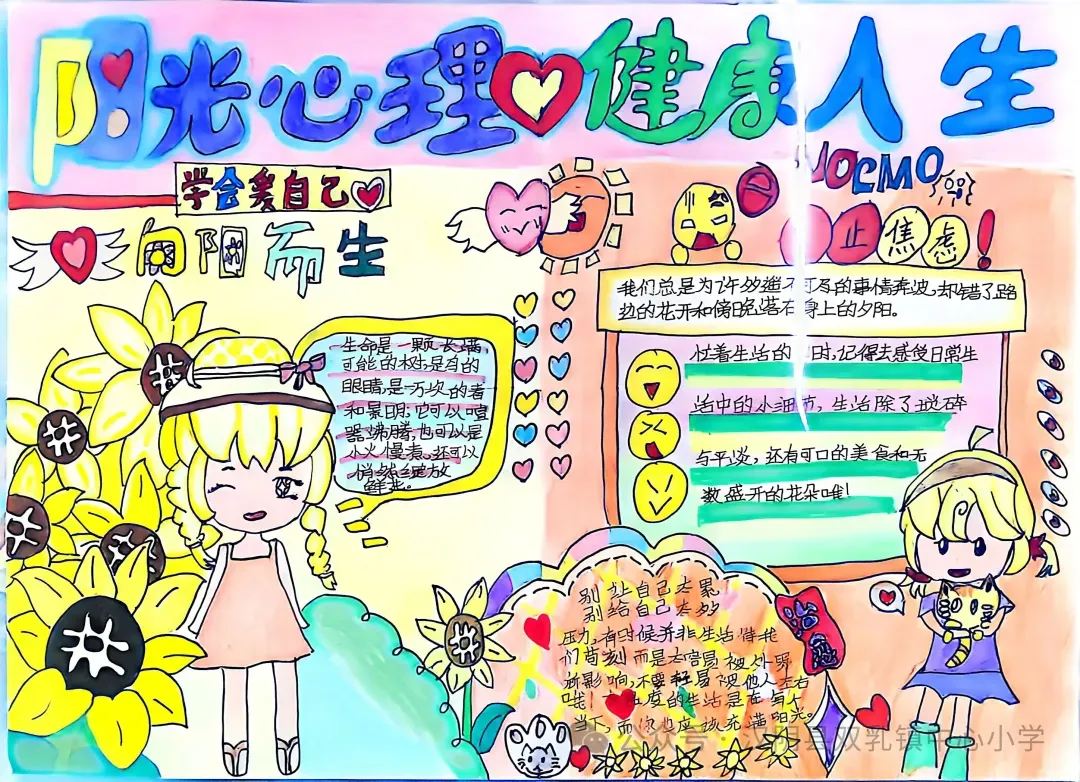 阳光心理健康人生
学会爱自己
向阳而生
止焦虑!
我们总是为许多遥不可及的事情奔波,却错了路
边的花开和傍晚落在身上的夕阳。
生命是一颗长满
可能的树,是鸟的
眼睛,是一万次的春
和景明;它可以喧
嚣沸腾,也可以是
小火慢煮,还可以
悄然绽放
鲜花。
忙着生活的同时,记得去感受日常生
活中的小细节,生活除了琐碎
与平淡,还有可口的美食和无
数盛开的花朵唯!
别让自己太累
别给自己太多
压力,有时候并非生活
们苛刻而是太容易被外界
所影响,不要轻易被他人左右
哦!的生活是在每个
当下,而你也应该充满阳光。
公众号·汉阴县双乳镇中心小学